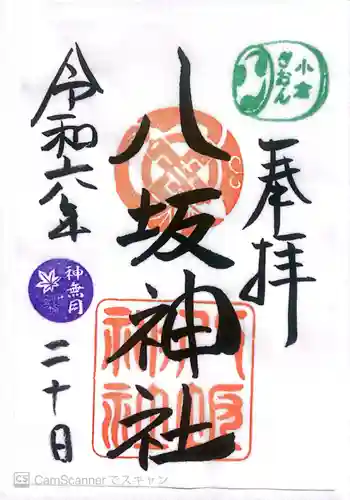 奉拝
小倉
ぎおん
八坂神社
八坂
神社
令和六年
神無月
二十日
CS CamScannerでスキャン